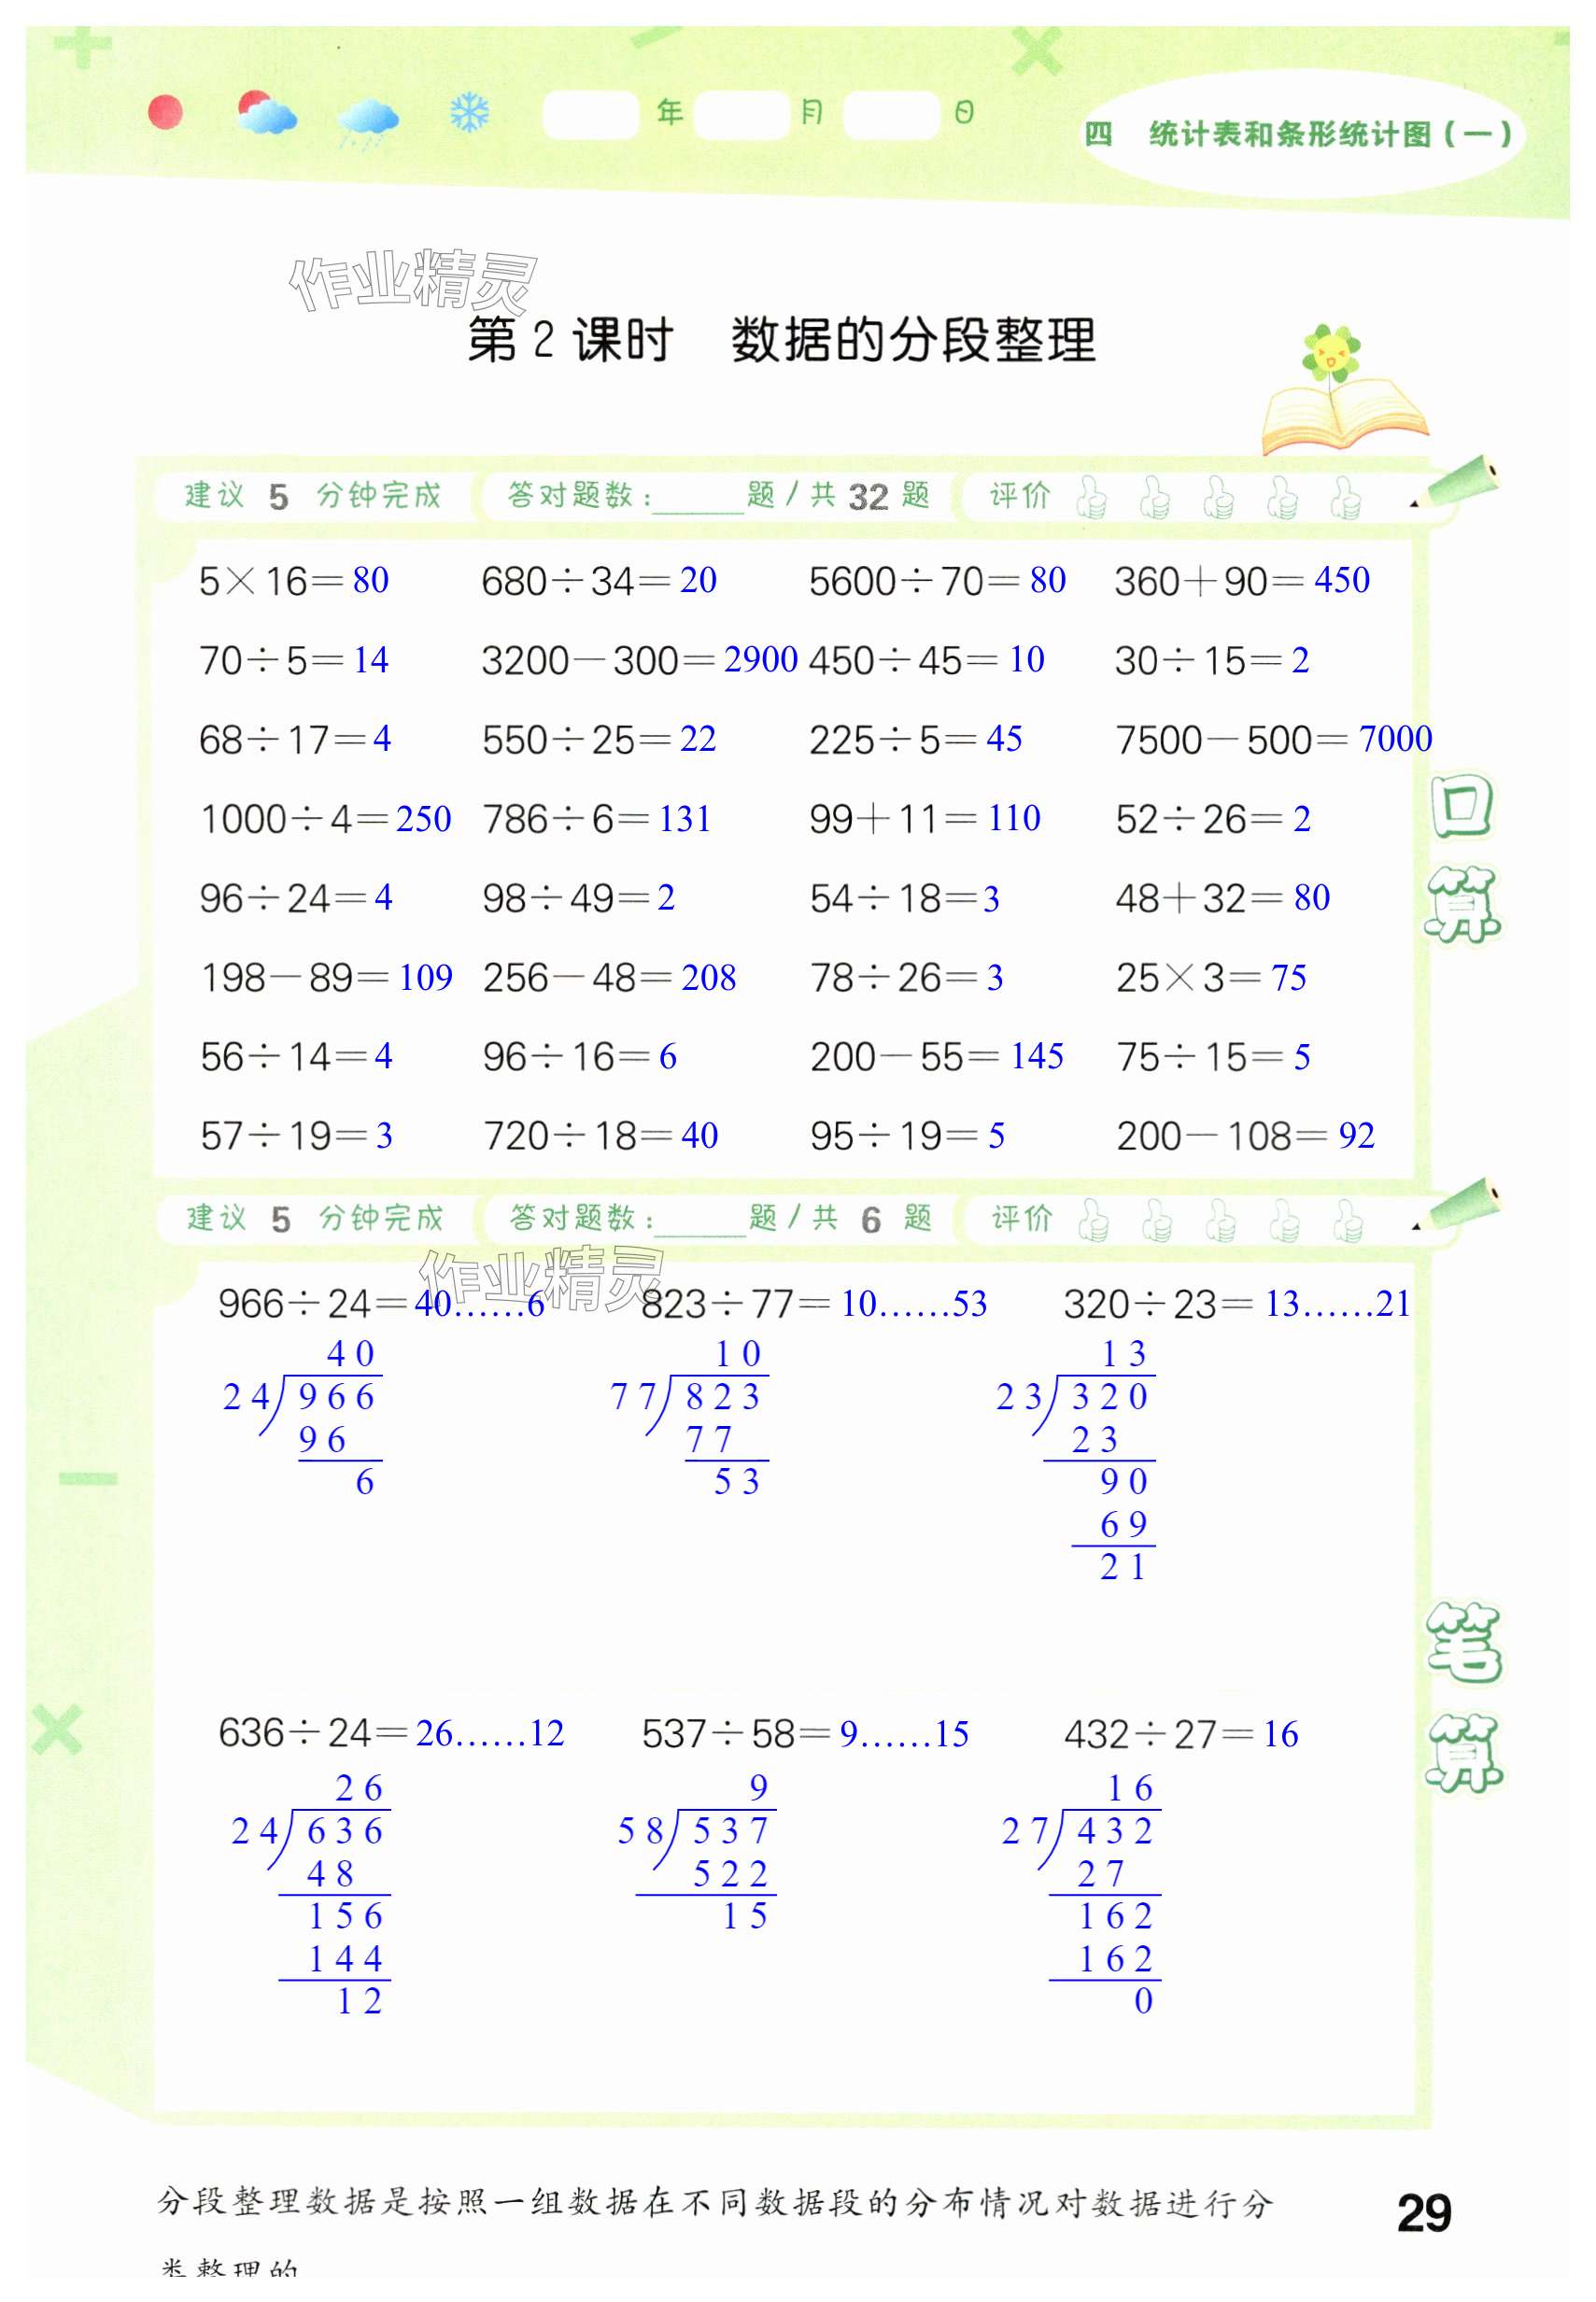 年 月 日
四 统计表和条形统计图(一)
作业精灵
第2课时 数据的分段整理
建议 5 分钟完成 答对题数:____题/共32题 评价
5×16=80 680÷34=20 5600÷70=80 360+90=450
70÷5=14 3200-300=2900 450÷45=10 30÷15=2
68÷17=4 550÷25=22 225÷5=45 7500-500=7000
1000÷4=250 786÷6=131 99+11=110 52÷26=2
96÷24=4 98÷49=2 54÷18=3 48+32=80
198-89=109 256-48=208 78÷26=3 25×3=75
56÷14=4 96÷16=6 200-55=145 75÷15=5
57÷19=3 720÷18=40 95÷19=5 200-108=92
口算
建议 5 分钟完成 答对题数:____题/共 6 题 评价
作业精灵
966÷24=40……6 823÷77=10……53 320÷23=13……21
40 10 13
24 966 77 823 23 320
96 77 23
6 53 90
69
21
636÷24=26……12 537÷58=9……15 432÷27=16
26 9 16
24 636 58 537 27 432
48 522 27
156 15 162
144 162
12 0
笔算
分段整理数据是按照一组数据在不同数据段的分布情况对数据进行分
类整理的
29